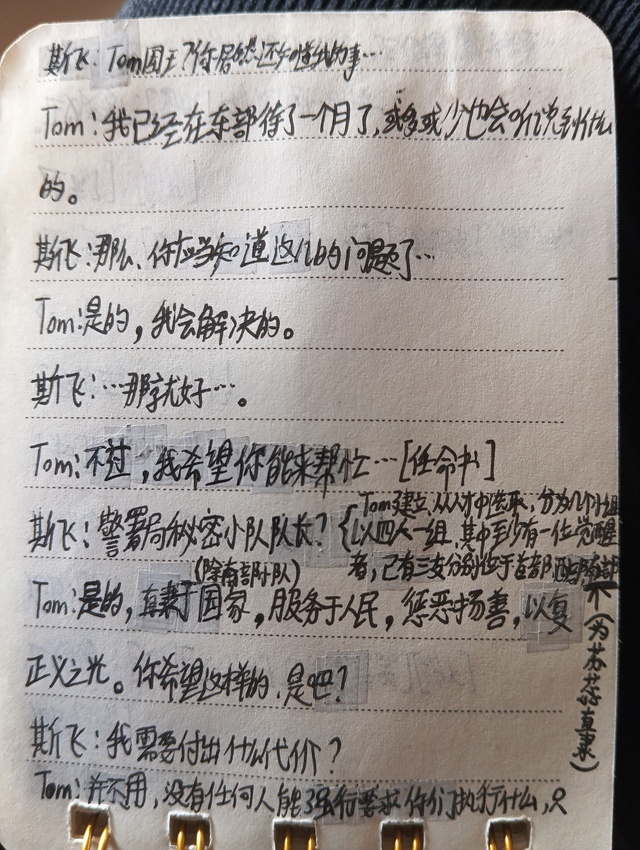 斯飞:Tom国王?你居然还知道我的事…
Tom:我已经在东部待了一个月了,或多或少也会听说到什么
的。
斯飞:那么,你应当知道这儿的问题了…
Tom:是的,我会解决的。
斯飞:…那就好…。
Tom:不过,我希望你能来帮忙…[任命书]
斯飞:警署局秘密小队队长?
{Tom建立,从人才中选取,分为几个小组
以四人一组,其中至少有一位觉醒
者,已有三支分别位于首都
(除南部小队)
Tom:是的,直隶于国家,服务于人民,惩恶扬善,以复
正义之光。你希望这样的,是吧?
斯飞:我需要付出什么代价?
Tom:并不用,没有任何人能强行要求你们执行什么,只